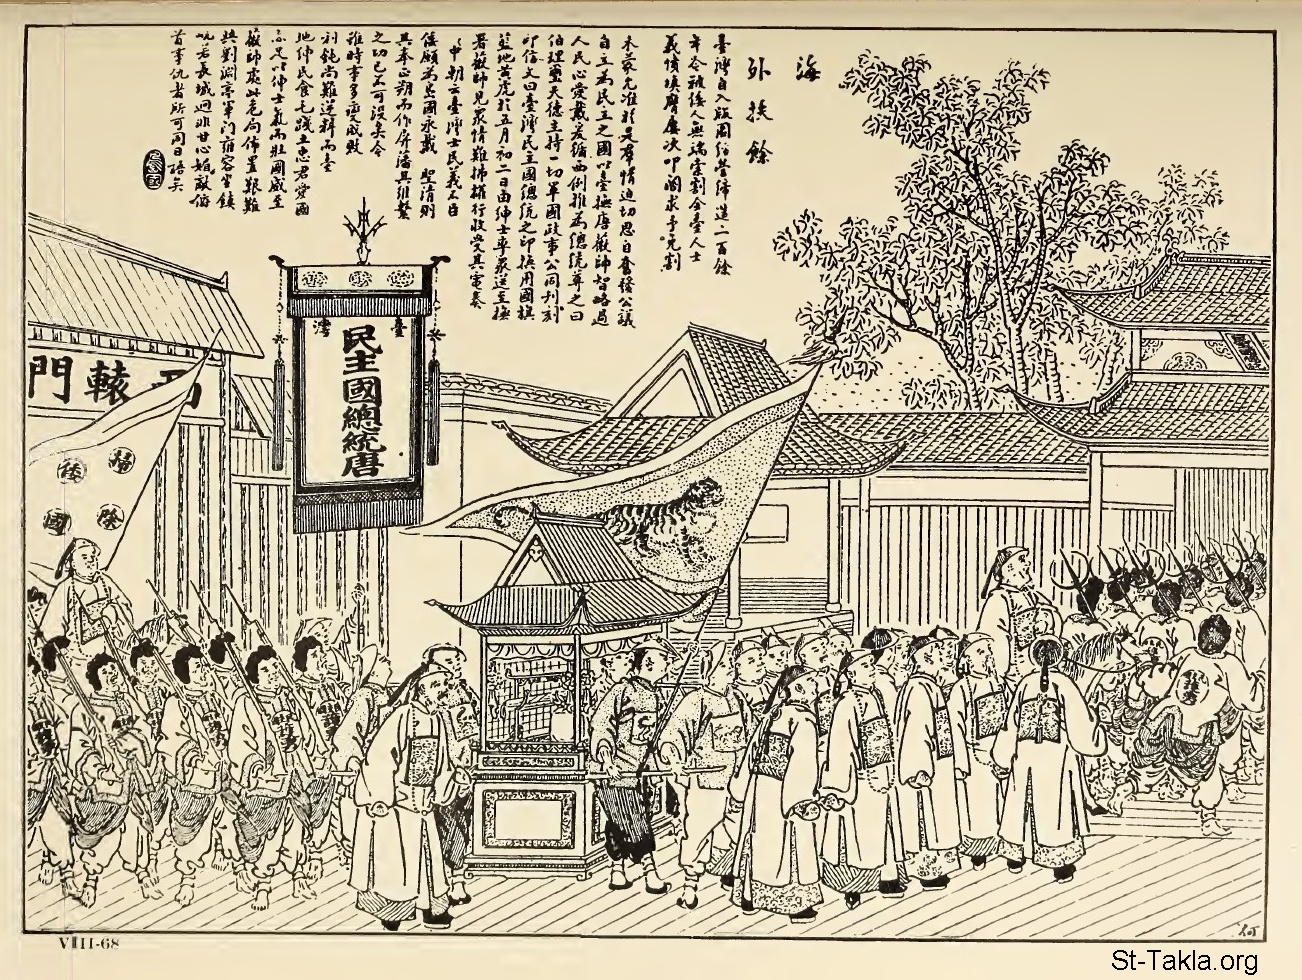 海外扶餘
臺灣自入版圖紛營締造二百餘
年今被倭人無端索割全臺人士
義憤填膺屢次叩閽求予免割
未蒙允准於是群情迫切思自奮發公議
自立為民主之國以臺撫唐薇帥智略過
人民心愛戴爰循西例推為總統尊之曰
伯理璽天德主持一切軍國政事公同刊刻
印信文曰臺灣民主國總統之印換用國旗
藍地黃虎於五月初二日由紳士率眾送至撫
署薇帥見眾情難拂權行收受其電奏
中朝云臺灣士民義不臣
倭願為島國永戴 聖清則
其奉正朔而作屏藩其維繫
之切已不可沒矣今
雖時事多變成敗
利鈍尚難逆料而臺
地仲民食毛踐土忠君愛國
亦足以伸士氣而壯國威至
薇帥處此危局佈置艱難
與劉淵亭軍門雍容坐鎮
屹若長城迥非甘心媚敵俯
首事仇者所可同日語矣
臺灣
民主國總統唐
西轅門
掃除
倭國
VIII-68
St-Takla.org